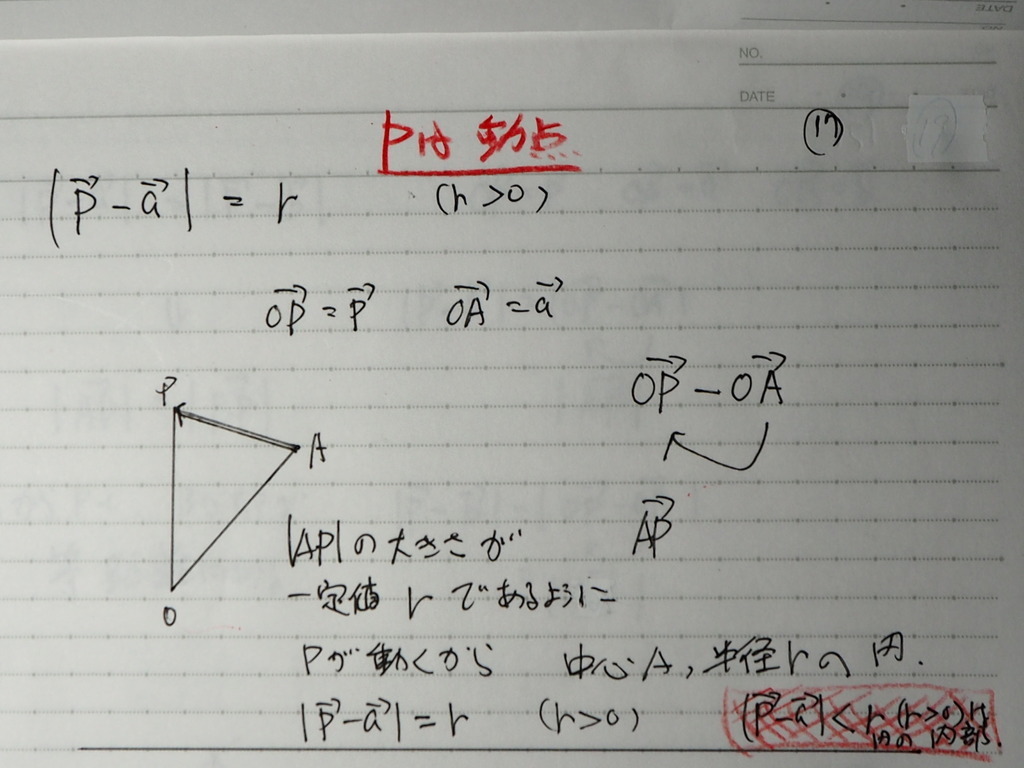 NO.
DATE
Pは動点 ⑰
|p⃗ - a⃗| = r (r>0)
OP⃗ = p⃗ OA⃗ = a⃗
P
A
O
OP⃗ - OA⃗
AP⃗
|AP|の大きさが
一定値 r であるように
Pが動くから 中心A, 半径rの円.
|p⃗ - a⃗| = r (r>0)
|p⃗ - a⃗| < r (r>0)は
円の内部.